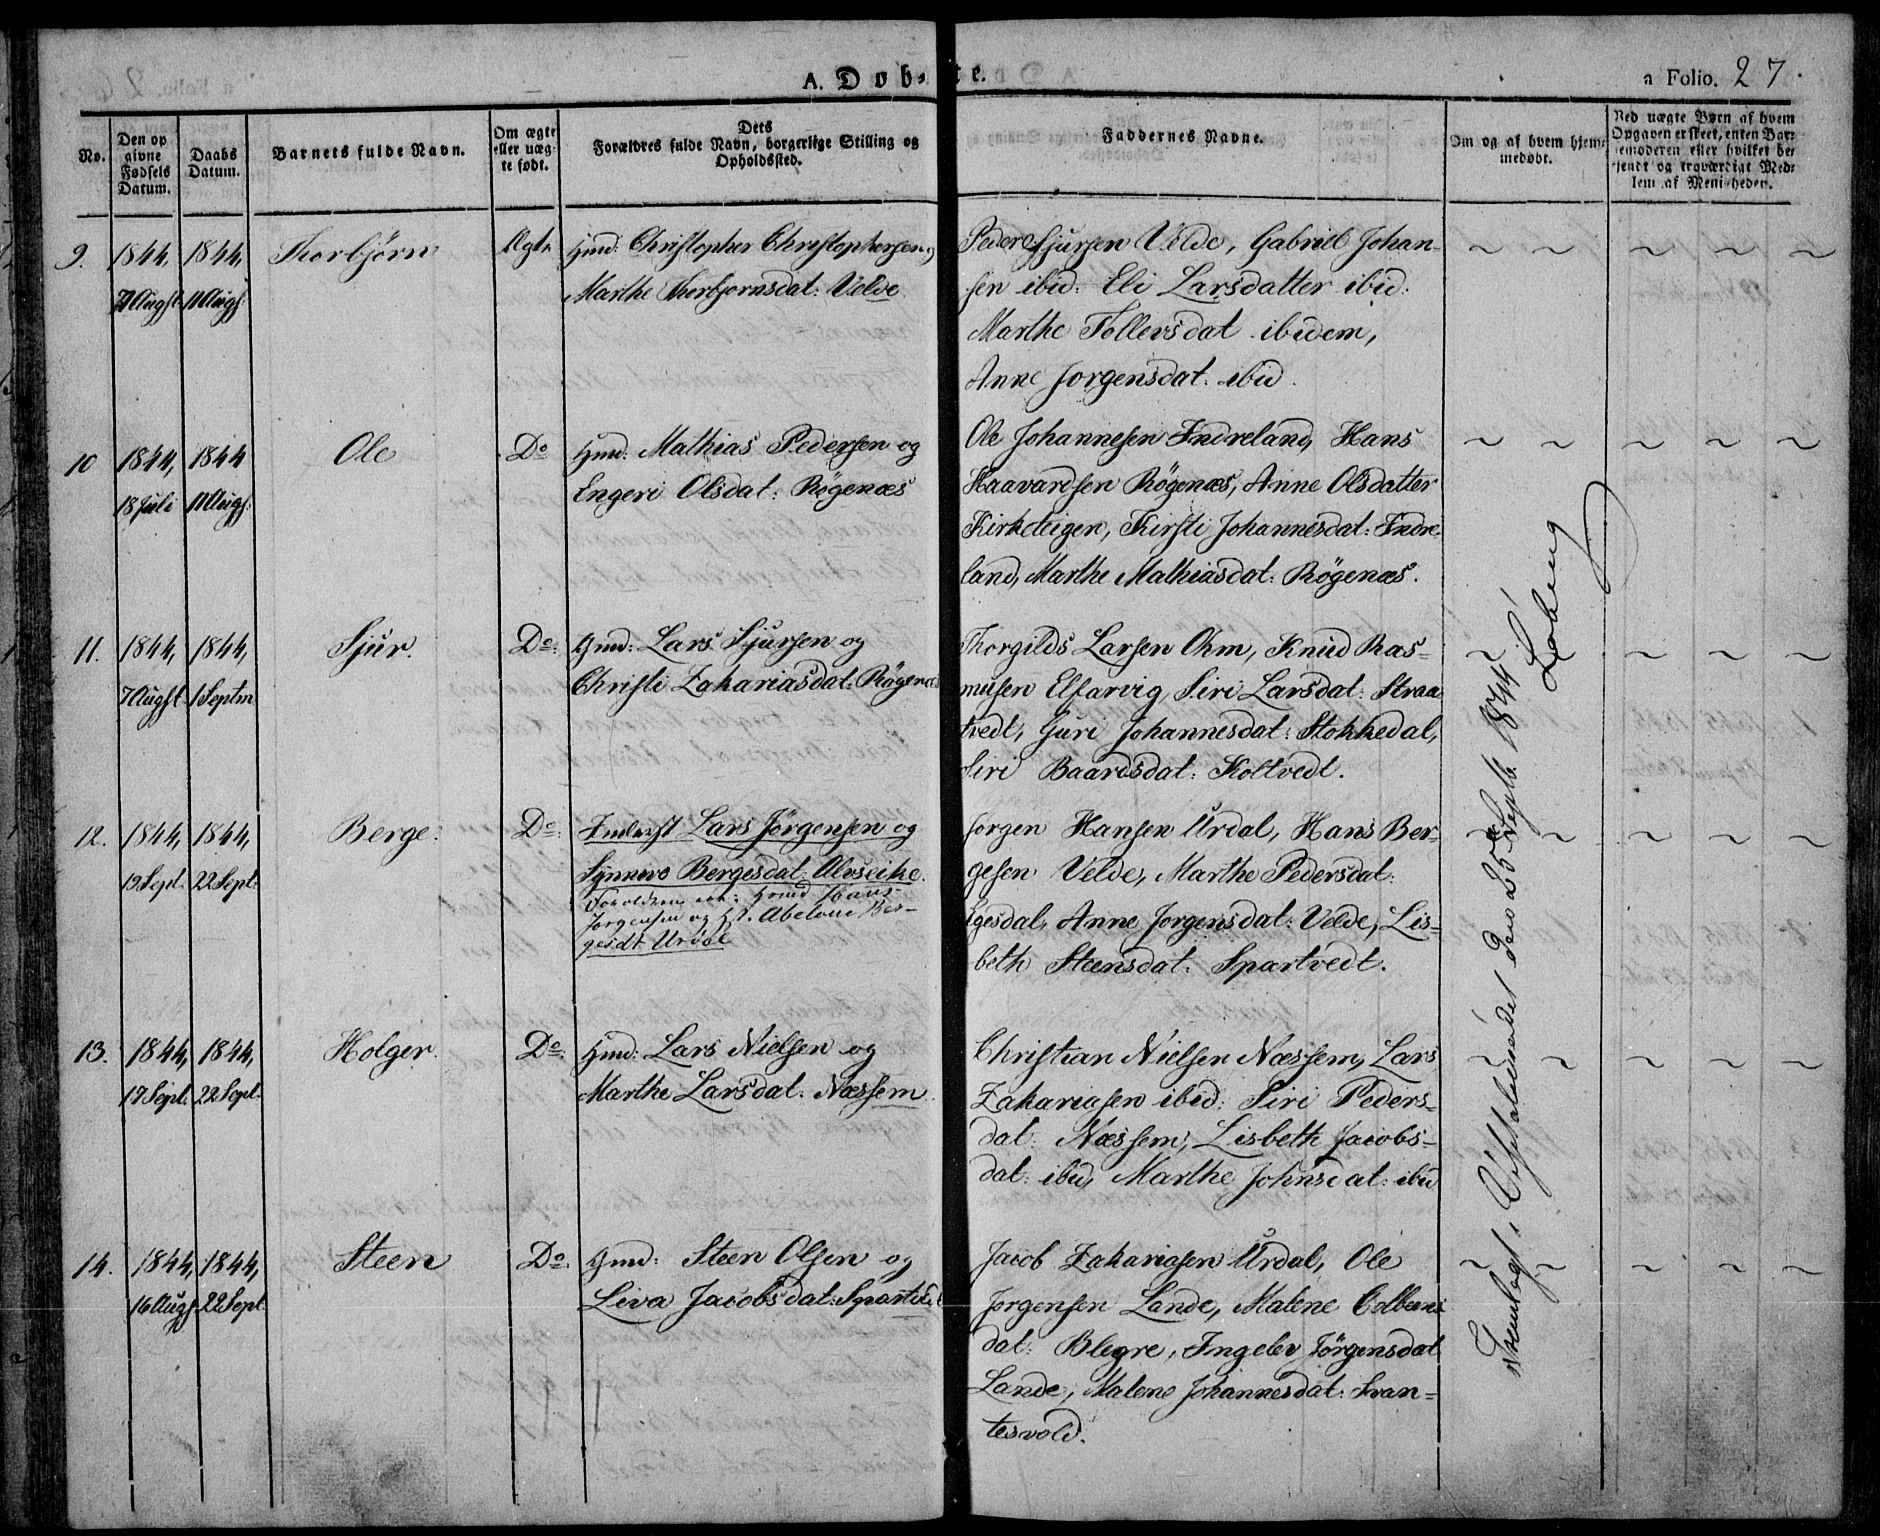 A. Døbte.
a Folio. 27.
No.
Den opgivne Fødsels Datum.
Daabs Datum.
Barnets fulde Navn.
Om ægte eller uægte født.
Dets Forældres fulde Navn, borgerlige Stilling og Opholdssted.
Faddernes Navne.
Om og af hvem hjemmedøbt.
Ved uægte Børn af hvem Opgaven er skeet, enten Barnemoderen eller hvilket beqjendt og troværdigt Medlem af Menigheden.
9. 1844, 1844, Thorbjørn Ægte Gmd: Christopher Christophersen og
Augst 11 Augs: Marthe Thorbjornsdat: Velde
Peder Sjursen Velde, Gabriel Johan-
sen ibid: Eli Larsdatter ibid:
Marthe Tollevsdat ibidem,
Anne Jorgensdat: ibid.
10 1844, 1844 Ole Do Gmd: Mathias Pedersen og
18 Juli 11 Augs: Engeri Olsdat: Røgenæs
Ole Johannesen Indreland, Hans
Haavardsen Røgenæs, Anne Olsdatter
Kirketeigen, Kirsti Johannesdat: Indre-
land, Marthe Mathiasdat: Røgenæs.
11. 1844, 1844, Sjur. Do: Gmd: Lars Sjursen og
7 Augst. 1 Septm Christi Zakariasdat: Røgenæs
Thorgilds Larsen Ohm, Knud Ras=
musen Elfarvig, Siri Larsdat: Straa
tvedt, Guri Johannesdat: Stokkedal,
Siri Baardsdat: Koltvedt.
12. 1844, 1844, Berge: Do: Inderst Lars Jørgensen og
19 Sept. 22 Sept: Synneve Bergesdat: Alvseike.
Forældrene er: Grmd Hans
Jørgensen og Abelone Ber-
gesdt Urdal
Jorgen Hansen Urdal, Hans Ber-
gesen Velde, Marthe Pedersdat:
Egesdal, Anne Jorgensdat: Velde, Lis=
beth Steensdat: Spartvedt.
13. 1844, 1844, Holger. Do: Gmd: Lars Nielsen og
17 Sept. 22 Sept. Marthe Larsdat: Næssem.
Christian Nielsen Næssem, Lars
Zakariasen ibid: Siri Peders=
dat: Næssem, Lisbeth Jacobs=
dat: ibid, Marthe Johnsdat: ibid
14. 1844, 1844, Steen Do: Gmd: Steen Olsen og
16 Augs 22 Sept. Liva Jacobsdat: Spartved
Jacob Zakariasen Urdal, Ole
Jorgensen Lande, Malene Colbens
dat: Blegre, Ingelev Jørgensdat
Lande, Malene Johannesdat: Svan=
tesvold.
Fremlagt i Visitatsmødet den 25de Septb. 1844